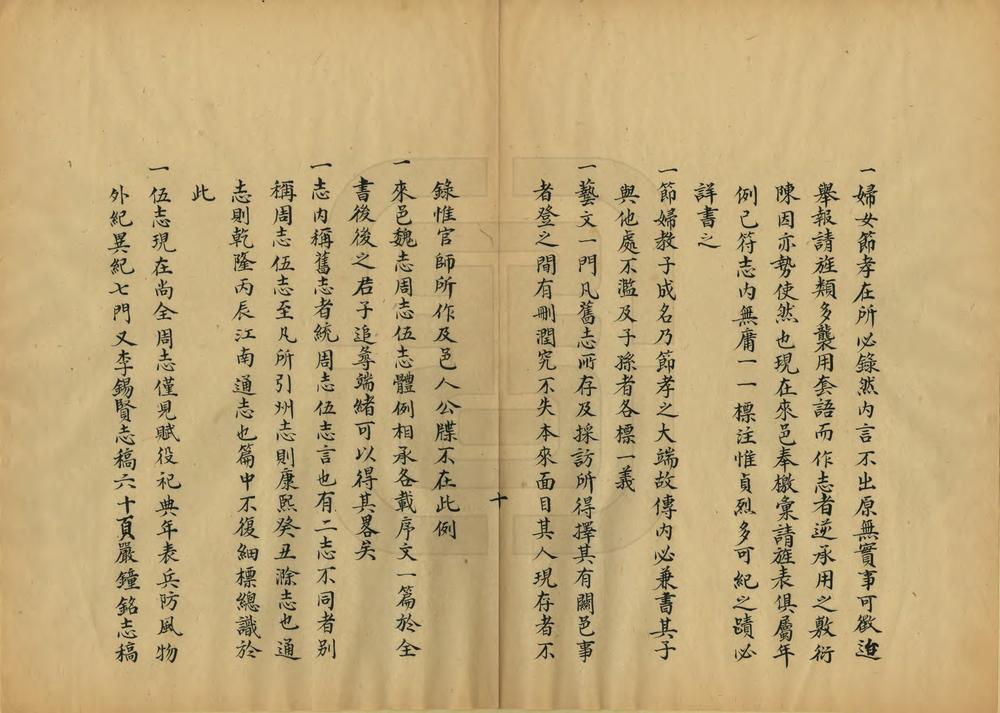 一婦女節孝在所必錄然內言不出原無實事可徵迨
舉報請旌類多襲用套語而作志者逆承用之敷衍
陳因亦勢使然也現在來邑奉檄彙請旌表俱屬年
例已符志內無庸一一標注惟貞烈多可紀之蹟必
詳書之
一節婦教子成名乃節孝之大端故傳內必兼書其子
與他處不濫及子孫者各標一義
一藝文一門凡舊志所存及採訪所得擇其有關邑事
者登之間有刪潤究不失本來面目其人現存者不
十
錄惟官師所作及邑人公牒不在此例
一來邑魏志周志伍志體例相承各載序文一篇於全
書後後之君子追尋端緒可以得其畧矣
一志內稱舊志者統周志伍志言也有二志不同者別
稱周志伍志至凡所引州志則康熙癸丑滁志也通
志則乾隆丙辰江南通志也篇中不復細標總識於
此
一伍志現在尚全周志僅見賦役祀典年表兵防風物
外紀異紀七門又李錫賢志稿六十頁嚴鐘銘志稿